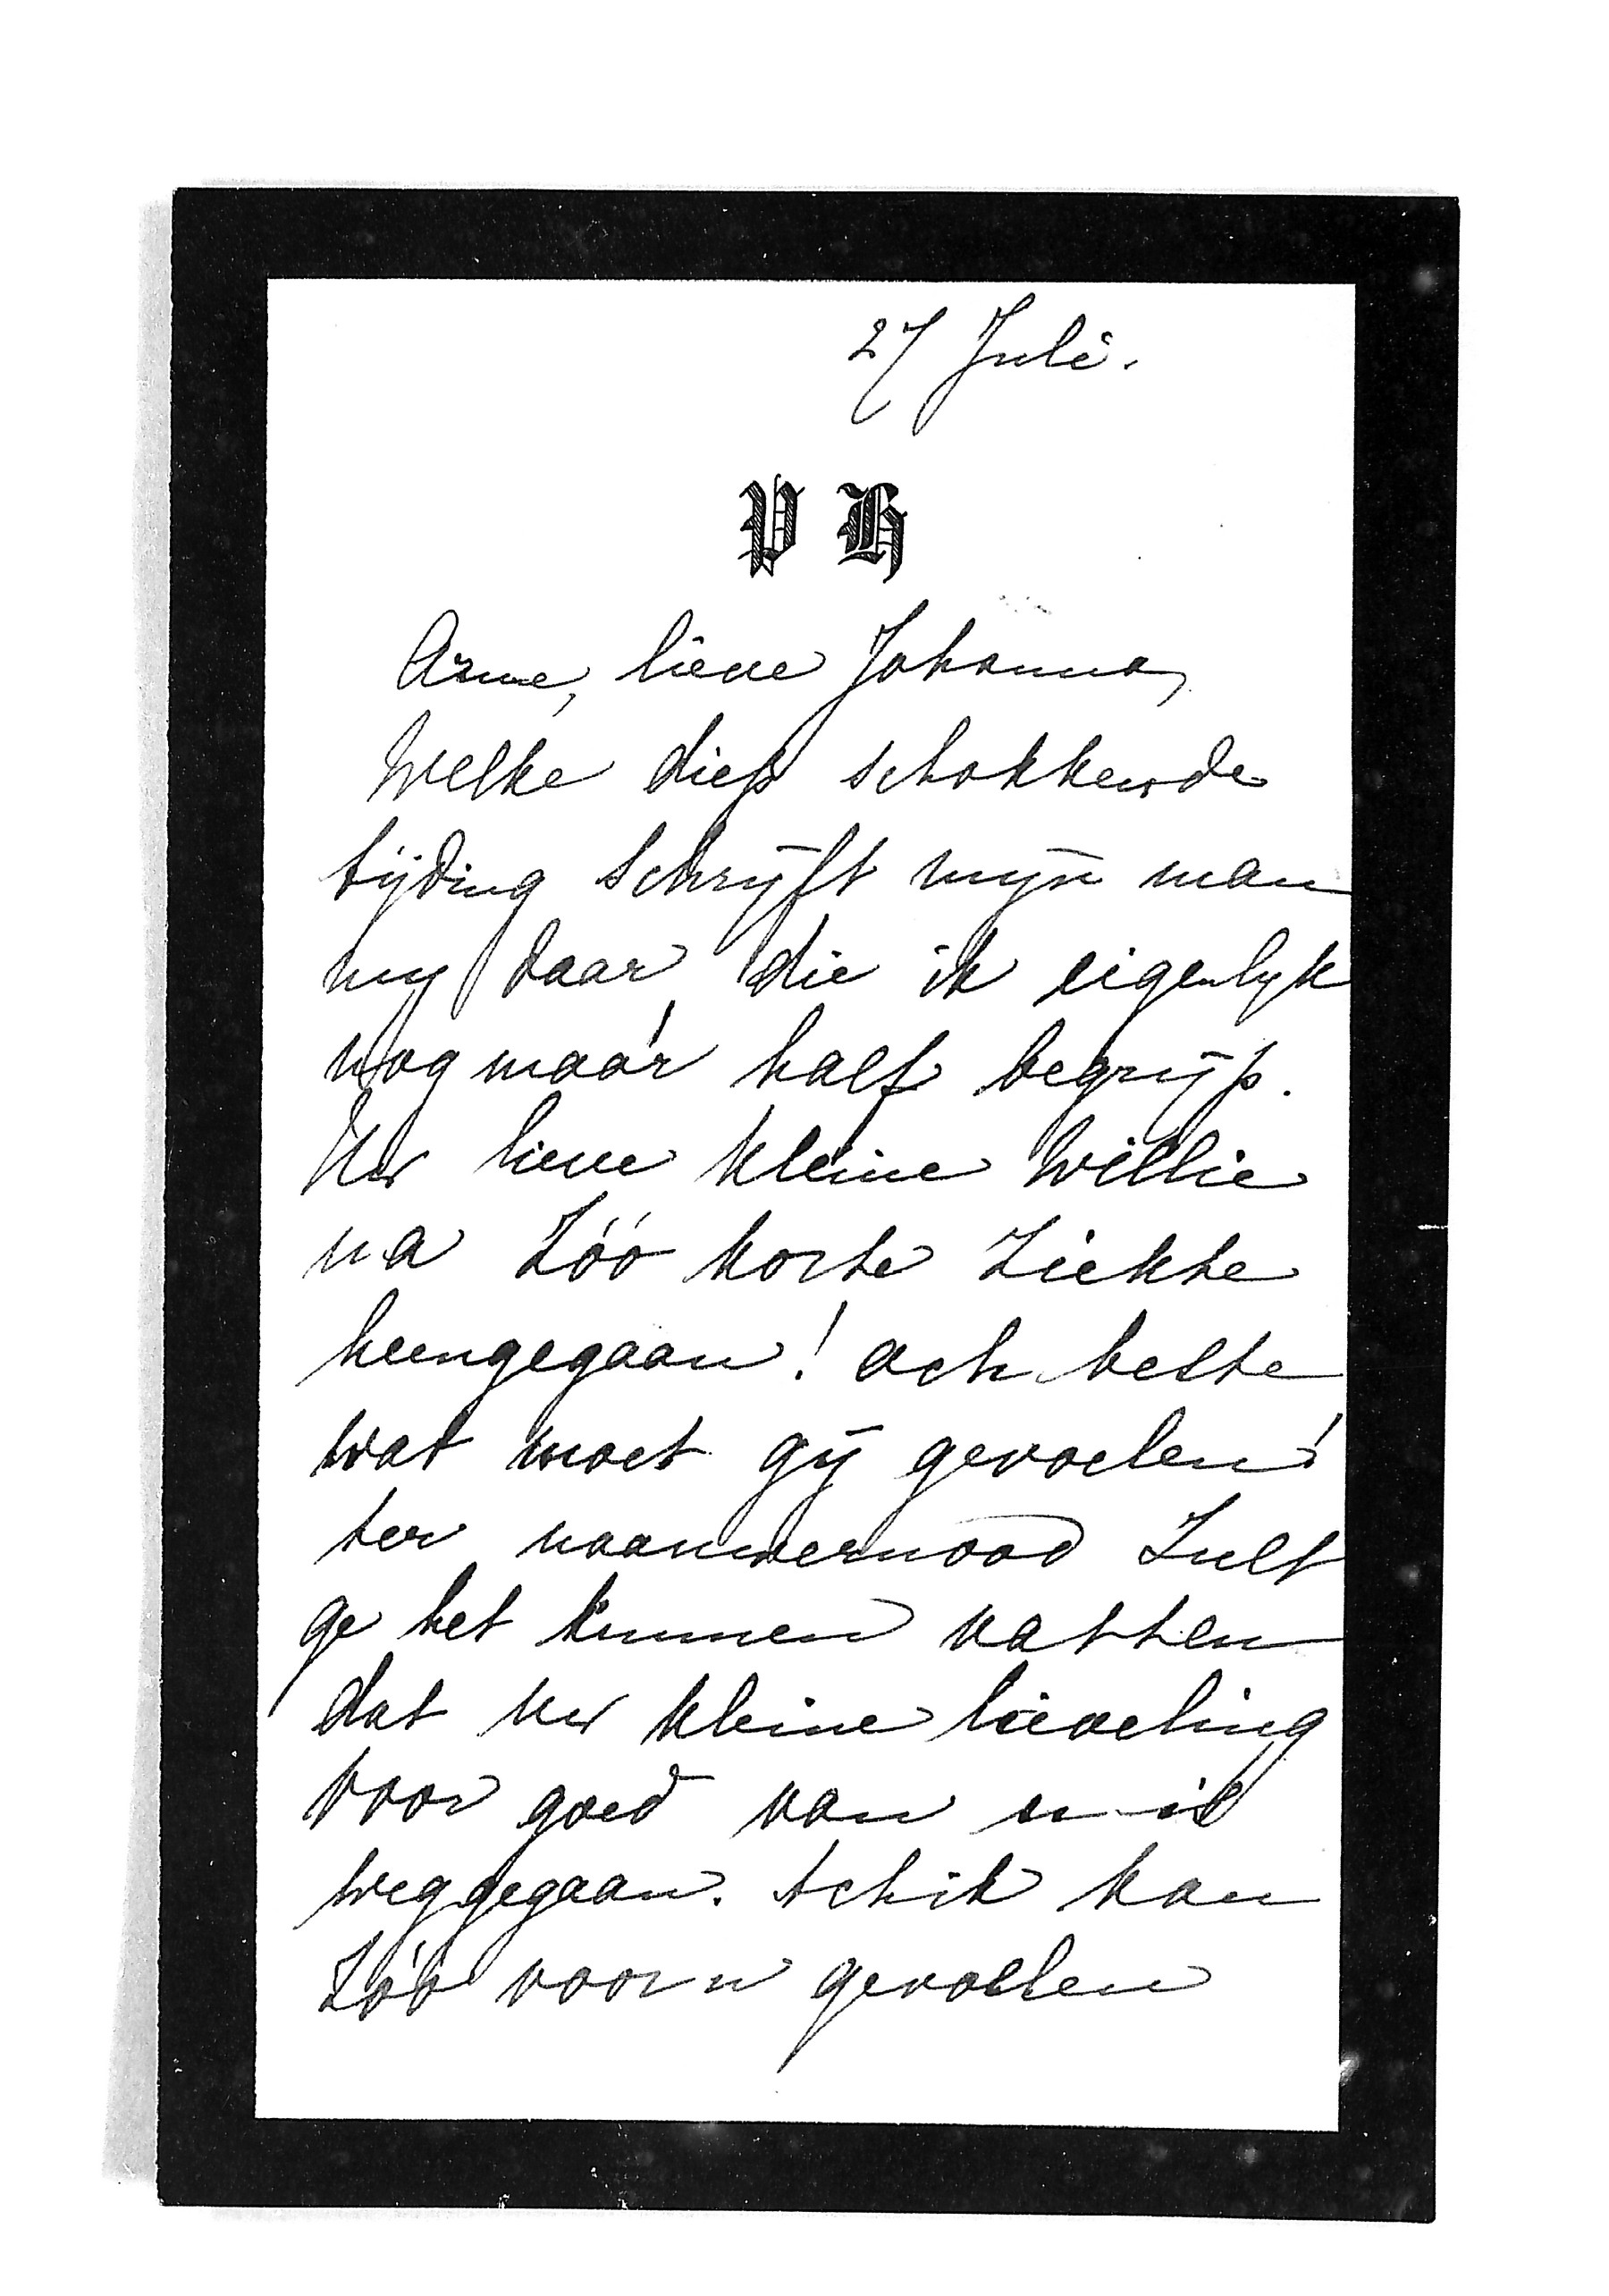 27 Juli.
P H
Arme, lieve Johanna,
Welke diep schokkende
tijding schrijft mijn man
my daar die ik eigenlyk
nog maar half begrijp.
Uw lieve kleine Willie
na zóó korte ziekte
heengegaan! och beste
wat moet gij gevoelen!
ter nauwernood zult
ge het kunnen vatten
dat uw kleine lieveling
voor goed van u is
weggegaan. Ach ik kan
zóó voor u gevoelen